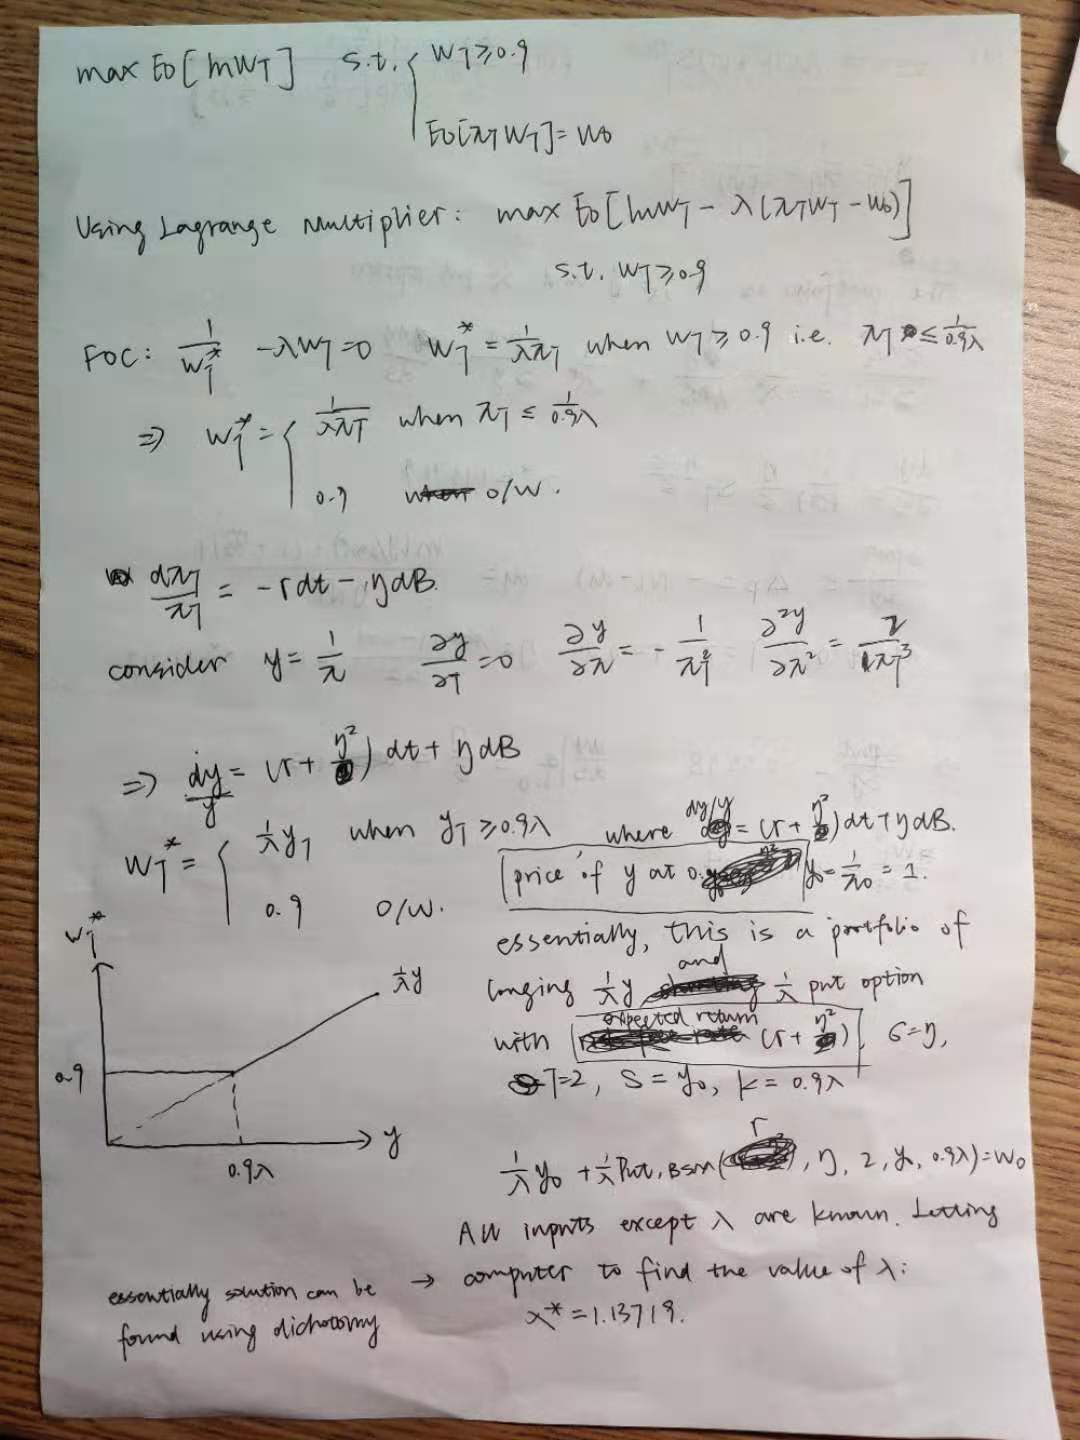 max E₀[lnW_T] s.t. { W_T ≥ 0.9
E₀[π_T W_T] = W₀
Using Lagrange Multiplier: max E₀[lnW_T - λ(π_T W_T - W₀)]
s.t. W_T ≥ 0.9
FOC: 1/W_T^* - λW_T = 0 W_T^* = 1/λπ_T when W_T ≥ 0.9 i.e. π_T ≤ 1/0.9λ
⇒ W_T^* = { 1/λπ_T when π_T ≤ 1/0.9λ
0.9 o/w.
dπ_T/π_T = -rdt - ηdB.
consider y = 1/π ∂y/∂T = 0 ∂y/∂π = - 1/π_T² ∂²y/∂π² = 2/π_T³
⇒ dy/y = (r + η²) dt + ηdB
W_T^* = { 1/λ y_T when y_T ≥ 0.9λ where dy/y = (r + η²)dt + ηdB.
0.9 o/w. price of y at 0. y₀ = 1/π₀ = 1.
essentially, this is a portfolio of
longing 1/λ y and 1/λ put option
with expected return (r + η²), σ = η,
T=2, S = y₀, K = 0.9λ
W_T^*
1/λ y
0.9
y
0.9λ
1/λ y₀ + 1/λ Put, BSM( r, η, 2, y₀, 0.9λ) = W₀
All inputs except λ are known. Letting
computer to find the value of λ:
λ* = 1.13719.
essentially solution can be →
found using dichotomy